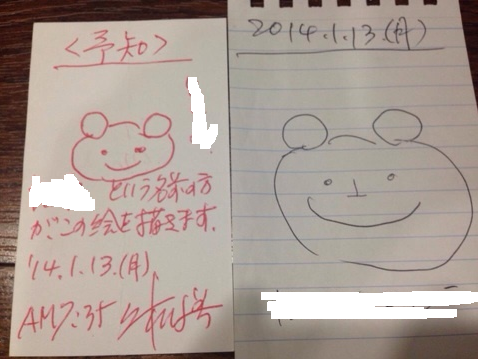 ＜予知＞
という名前の方
がこの絵を描きます.
'14.1.13.(月)
AM7:35
2014.1.13.(月)